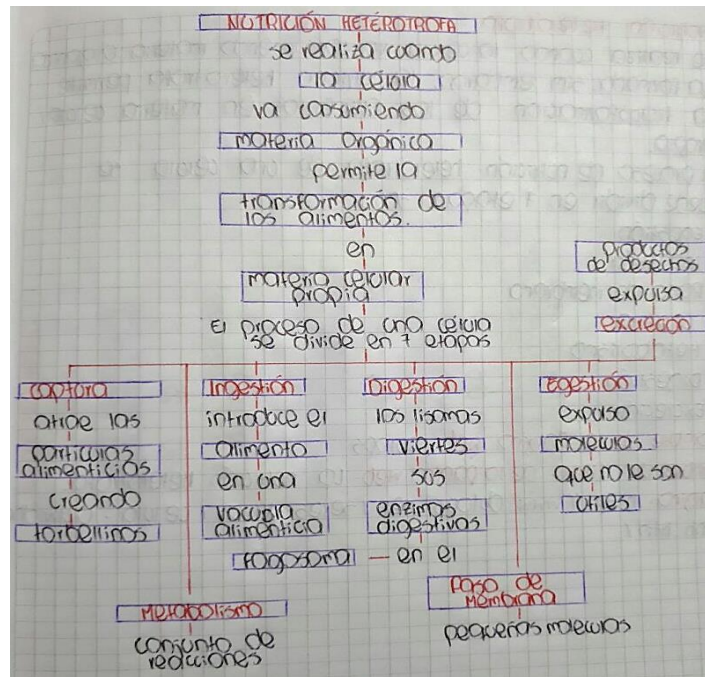 NUTRICIÓN HETÉROTROFA
se realiza cuando
la célula
va consumiendo
materia orgánica
permite la
transformación de
los alimentos.
en
materia celular
propia
El proceso de una célula
se divide en 7 etapas
productos
de desechos
expulsa
excreción
captura
atrae las
partículas
alimenticias
creando
torbellinos
Ingestión
introduce el
alimento
en una
vacuola
alimenticia
Digestión
los lisomas
viertes
sus
enzimas
digestivas
fagosoma — en el
Egestión
expulso
moleculas
que no le son
utiles
Metabolismo
conjunto de
reacciones
Paso de
Membrana
pequeñas moleculas